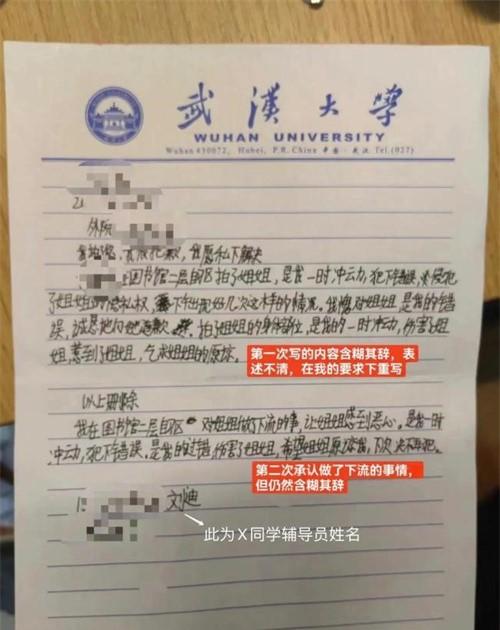 武漢大學
WUHAN UNIVERSITY
Wuhan 430072, Hubei, P.R. China 中国·武汉 Tel.(027)
21
外院
我愿私下解决
上图书馆二层自习区拍了姐姐,是我一时冲动,犯下错误,
了姐姐的隐私权,下次出现好几次这样的情况。我愧对姐姐,是我的错
误,诚恳地向她道歉,拍姐姐的身体部位,是我的一时冲动,伤害了姐
姐,惹到了姐姐,乞求姐姐的原谅。
第一次写的内容含糊其辞,表
述不清,在我的要求下重写
以上删除
我在图书馆一层自习区对姐姐做了下流的事,让姐姐感到恶心。是我一时
冲动,犯下错误,是我的过错伤害了姐姐,希望姐姐原谅我,下次决不再犯。
第二次承认做了下流的事情,
但仍然含糊其辞
文迪
此为X同学辅导员姓名